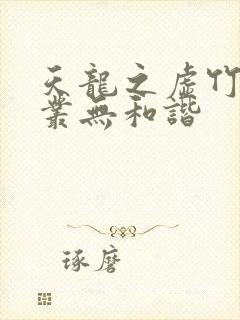 天龍之虛竹
叢無和諧
琢磨